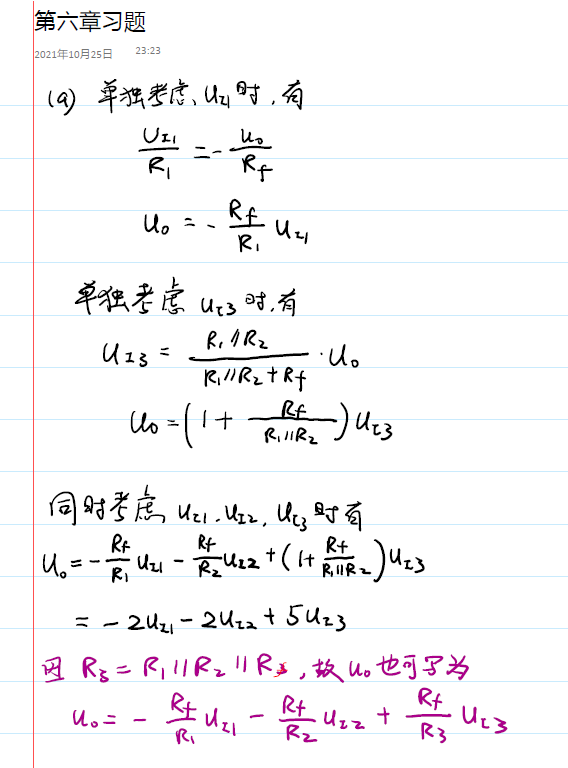 第六章习题
2021年10月25日 23:23
(a) 单独考虑 u_{I1} 时，有
\frac{U_{I1}}{R_1} = -\frac{u_o}{R_f}
u_o = -\frac{R_f}{R_1} u_{I1}
单独考虑 u_{I3} 时，有
u_{I3} = \frac{R_1 // R_2}{R_1 // R_2 + R_f} · u_o
u_o = (1 + \frac{R_f}{R_1 // R_2}) u_{I3}
同时考虑 u_{I1}, u_{I2}, u_{I3} 时有
u_o = -\frac{R_f}{R_1} u_{I1} - \frac{R_f}{R_2} u_{I2} + (1 + \frac{R_f}{R_1 // R_2}) u_{I3}
= -2u_{I1} - 2u_{I2} + 5u_{I3}
因 R_3 = R_1 // R_2 // R , 故 u_o 也可写为
u_o = -\frac{R_f}{R_1} u_{I1} - \frac{R_f}{R_2} u_{I2} + \frac{R_f}{R_3} u_{I3}